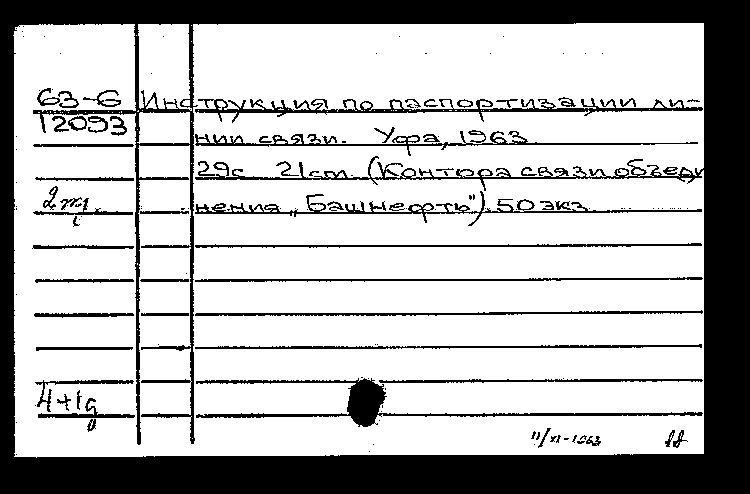 63-6 Инструкция по паспортизации ли-
12093 нии связи. Уфа, 1963.
29с 21см (Контора связи объеди
нения „Башнефть") 50 экз.
4+1д
11/XI-1963